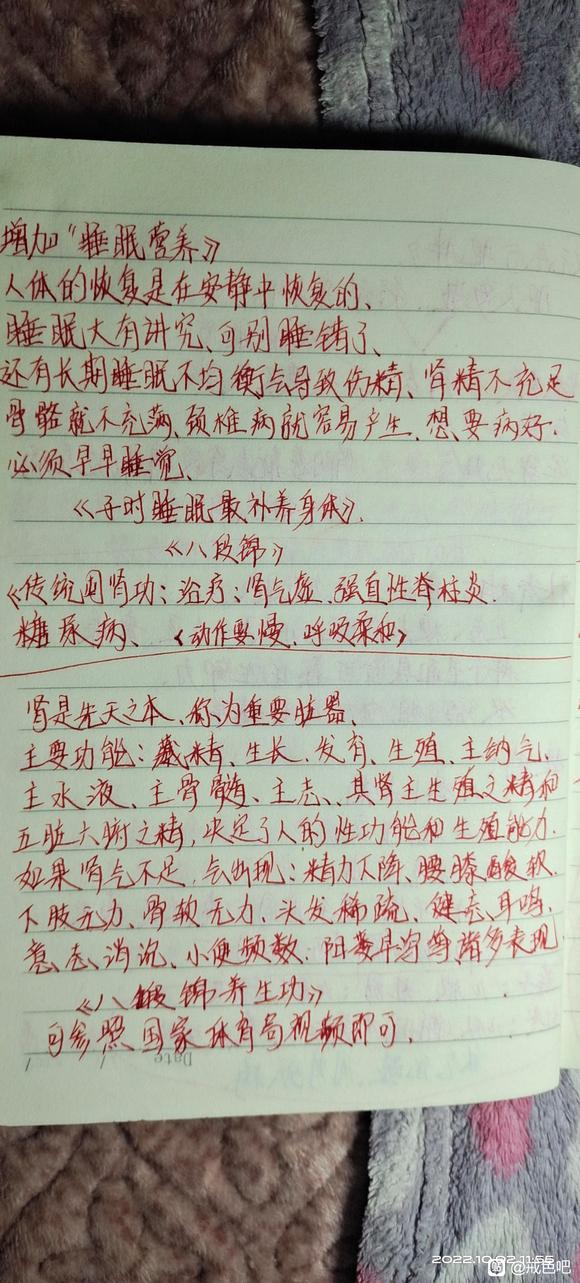 增加“睡眠营养》
人体的恢复是在安静中恢复的、
睡眠大有讲究、可别睡错了、
还有长期睡眠不均衡会导致伤精、肾精不充足
骨骼就不充满、颈椎病就容易产生、想要病好、
必须早早睡觉、
《子时睡眠最补养身体》.
《八段锦》
《传统固肾功：治疗：肾气虚、强直性脊柱炎.
糖尿病、《动作要慢、呼吸柔和》
肾是先天之本、称为重要脏器、
主要功能：藏精、生长、发育、生殖、主纳气、
主水液、主骨髓、主志、其肾主生殖之精和
五脏六腑之精，决定了人的性功能和生殖能力.
如果肾气不足，会出现：精力下降、腰膝酸软.
下肢无力、骨软无力、头发稀疏、健忘、耳鸣、
意志消沉、小便频数、阳萎早泻等诸多表现
《八段锦养生功》
可参照国家体育局视频即可.
Date
2022.10.02 11:55
@戒色吧